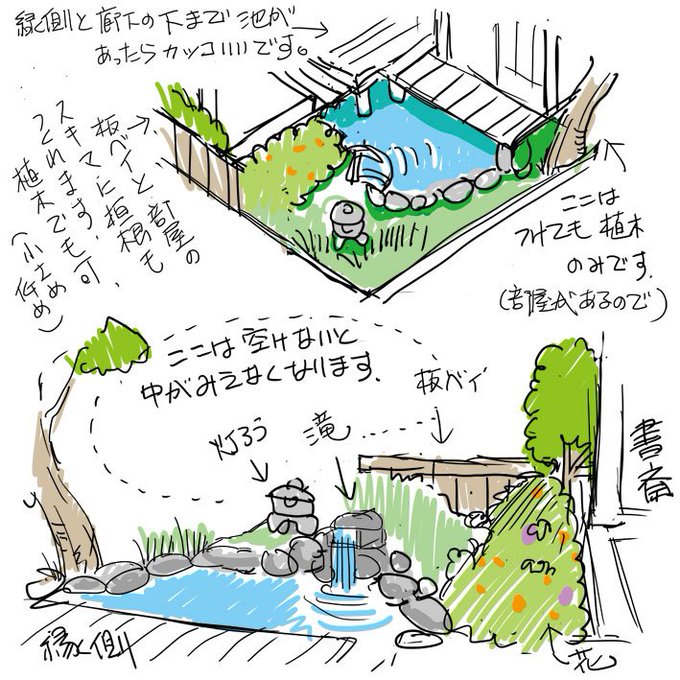 縁側と廊下の下まで池が
あったらカッコいいです。
板ベイと部屋の
スキマに垣根も
つくれます、
植木でも可
(小さめ
低め)
ここは
つけても植木
のみです.
(部屋があるので)
ここは空けないと
中がみえなくなります.
板ベイ
灯ろう
滝
書斎
縁側
花